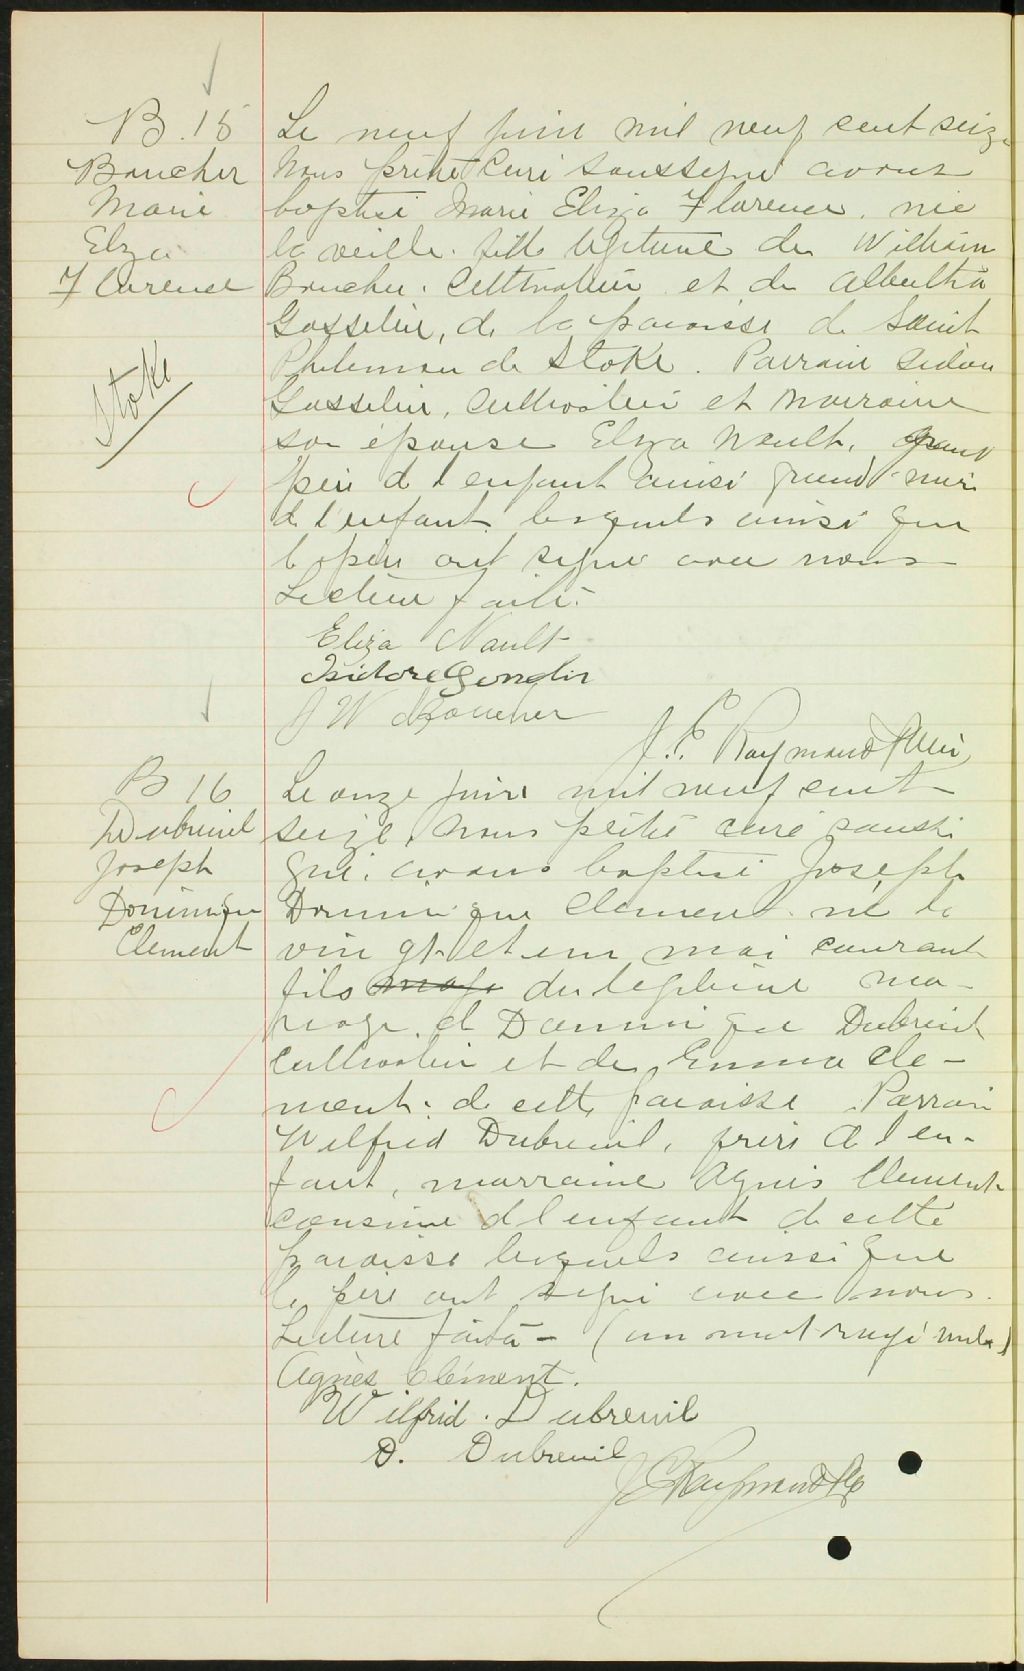 B. 15
Boucher
Marie
Elza
Florence
Stoke
Le neuf juin mil neuf cent seize
Nous prêtre curé soussigné avons
baptisé Marie Eliza Florence, née
la veille. fille légitime de William
Boucher. Cultivateur et de Albertha
Gosselin, de la paroisse de Saint
Philemon de Stoke. Parrain
Gosselin, cultivateur et marraine
son épouse Eliza Nault, grand
père de l'enfant ainsi grand mère
de l'enfant lesquels ainsi que
le père ont signé avec nous
Lecture faite.
Eliza Nault
Isidore Gosselin
J W Boucher
J. E. Raymond Ptre
B 16
Dubreuil
Joseph
Dominique
Clement
Le onze juin mil neuf cent
seize, nous prêtre curé soussi
gné. avons baptisé Joseph
Dominique Clement. né le
vingt et un mai courant
fils du légitime ma-
riage de Dominique Dubreuil
cultivateur et de Emma Cle-
ment. de cette paroisse. Parrain
Wilfrid Dubreuil, frère de l'en-
fant, marraine Agnès Clement
cousine de l'enfant de cette
paroisse lesquels ainsi que
le père ont signé avec nous.
Lecture faite - (un mot rayé nul)
Agnès Clément.
Wilfrid. Dubreuil
D. Dubreuil
J E Raymond Ptre